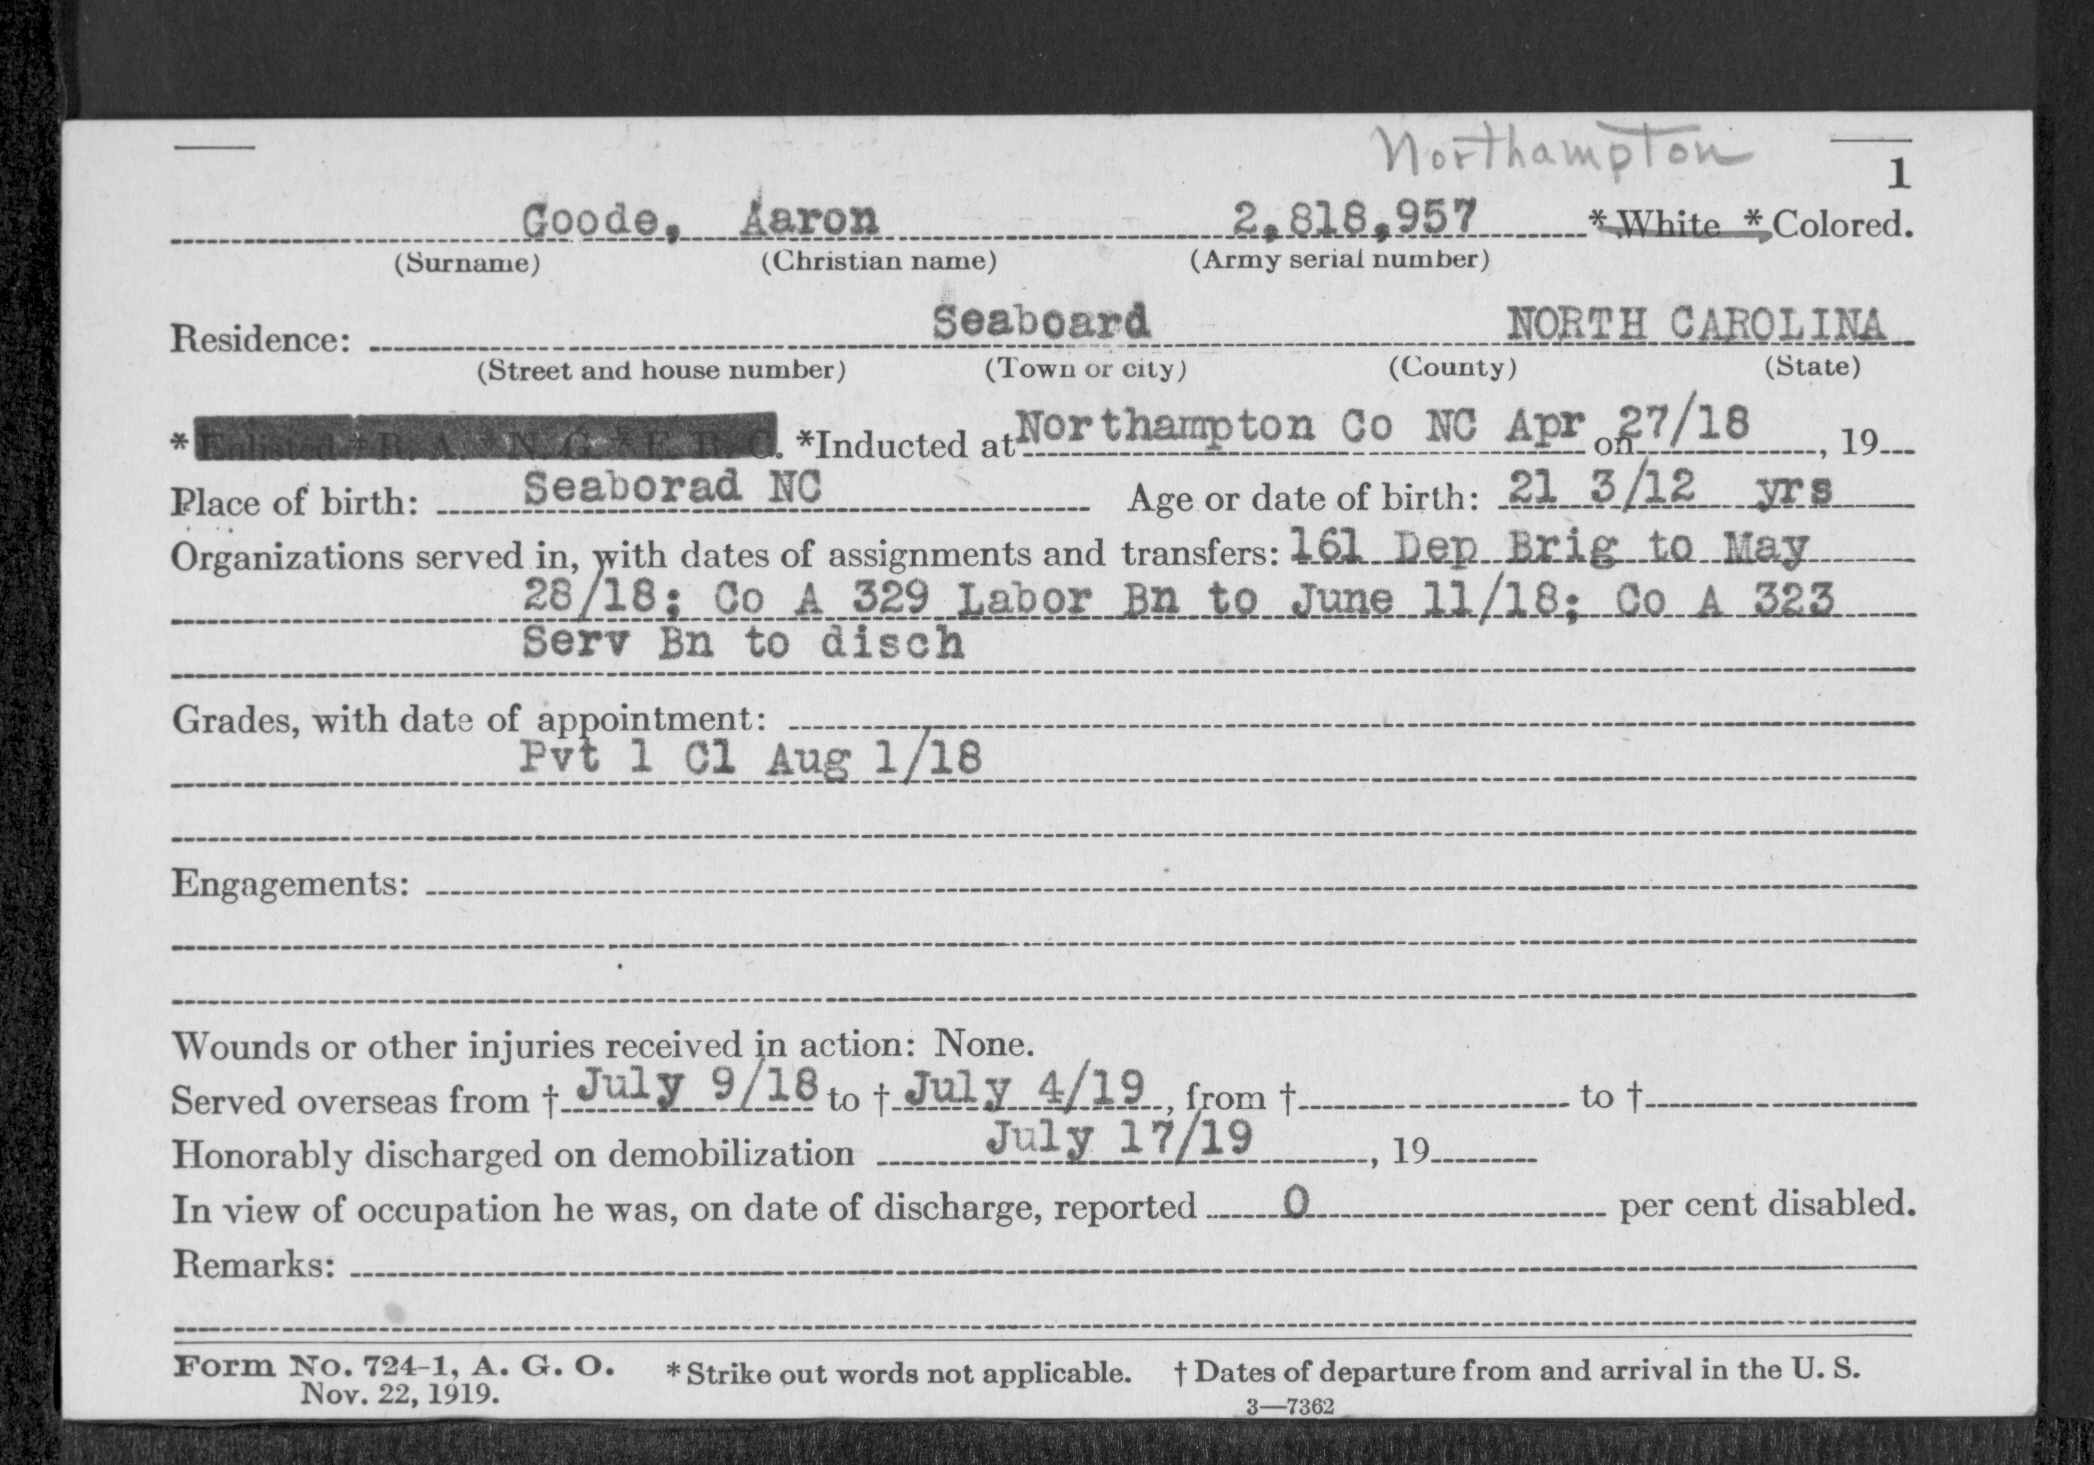 Northampton
1
Goode, Aaron 2,818,957 * White * Colored.
(Surname) (Christian name) (Army serial number)
Residence: Seaboard NORTH CAROLINA
(Street and house number) (Town or city) (County) (State)
* Enlisted * R. A. * N. G. * E. R. C. *Inducted at Northampton Co NC Apr on 27/18, 19
Place of birth: Seaborad NC Age or date of birth: 21 3/12 yrs
Organizations served in, with dates of assignments and transfers: 161 Dep Brig to May
28/18; Co A 329 Labor Bn to June 11/18; Co A 323
Serv Bn to disch
Grades, with date of appointment:
Pvt 1 Cl Aug 1/18
Engagements:
Wounds or other injuries received in action: None.
Served overseas from † July 9/18 to † July 4/19, from † to †
Honorably discharged on demobilization July 17/19, 19
In view of occupation he was, on date of discharge, reported 0 per cent disabled.
Remarks:
Form No. 724-1, A. G. O. * Strike out words not applicable. † Dates of departure from and arrival in the U. S.
Nov. 22, 1919.
3—7362